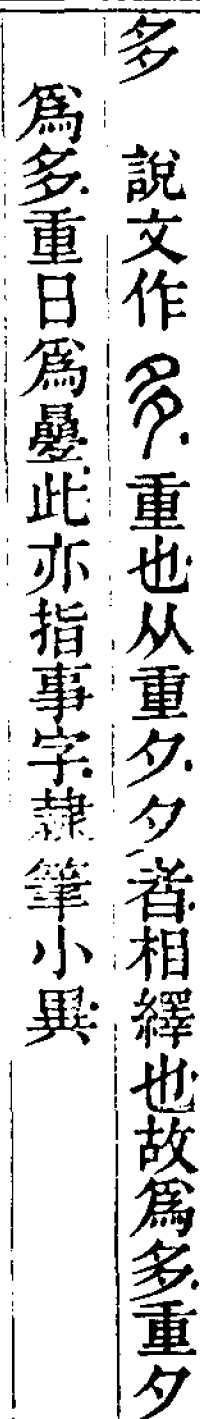 多　說文作𡖇重也从重夕夕者相繹也故爲多重夕
爲多重日爲曡此亦指事字隷筆小異